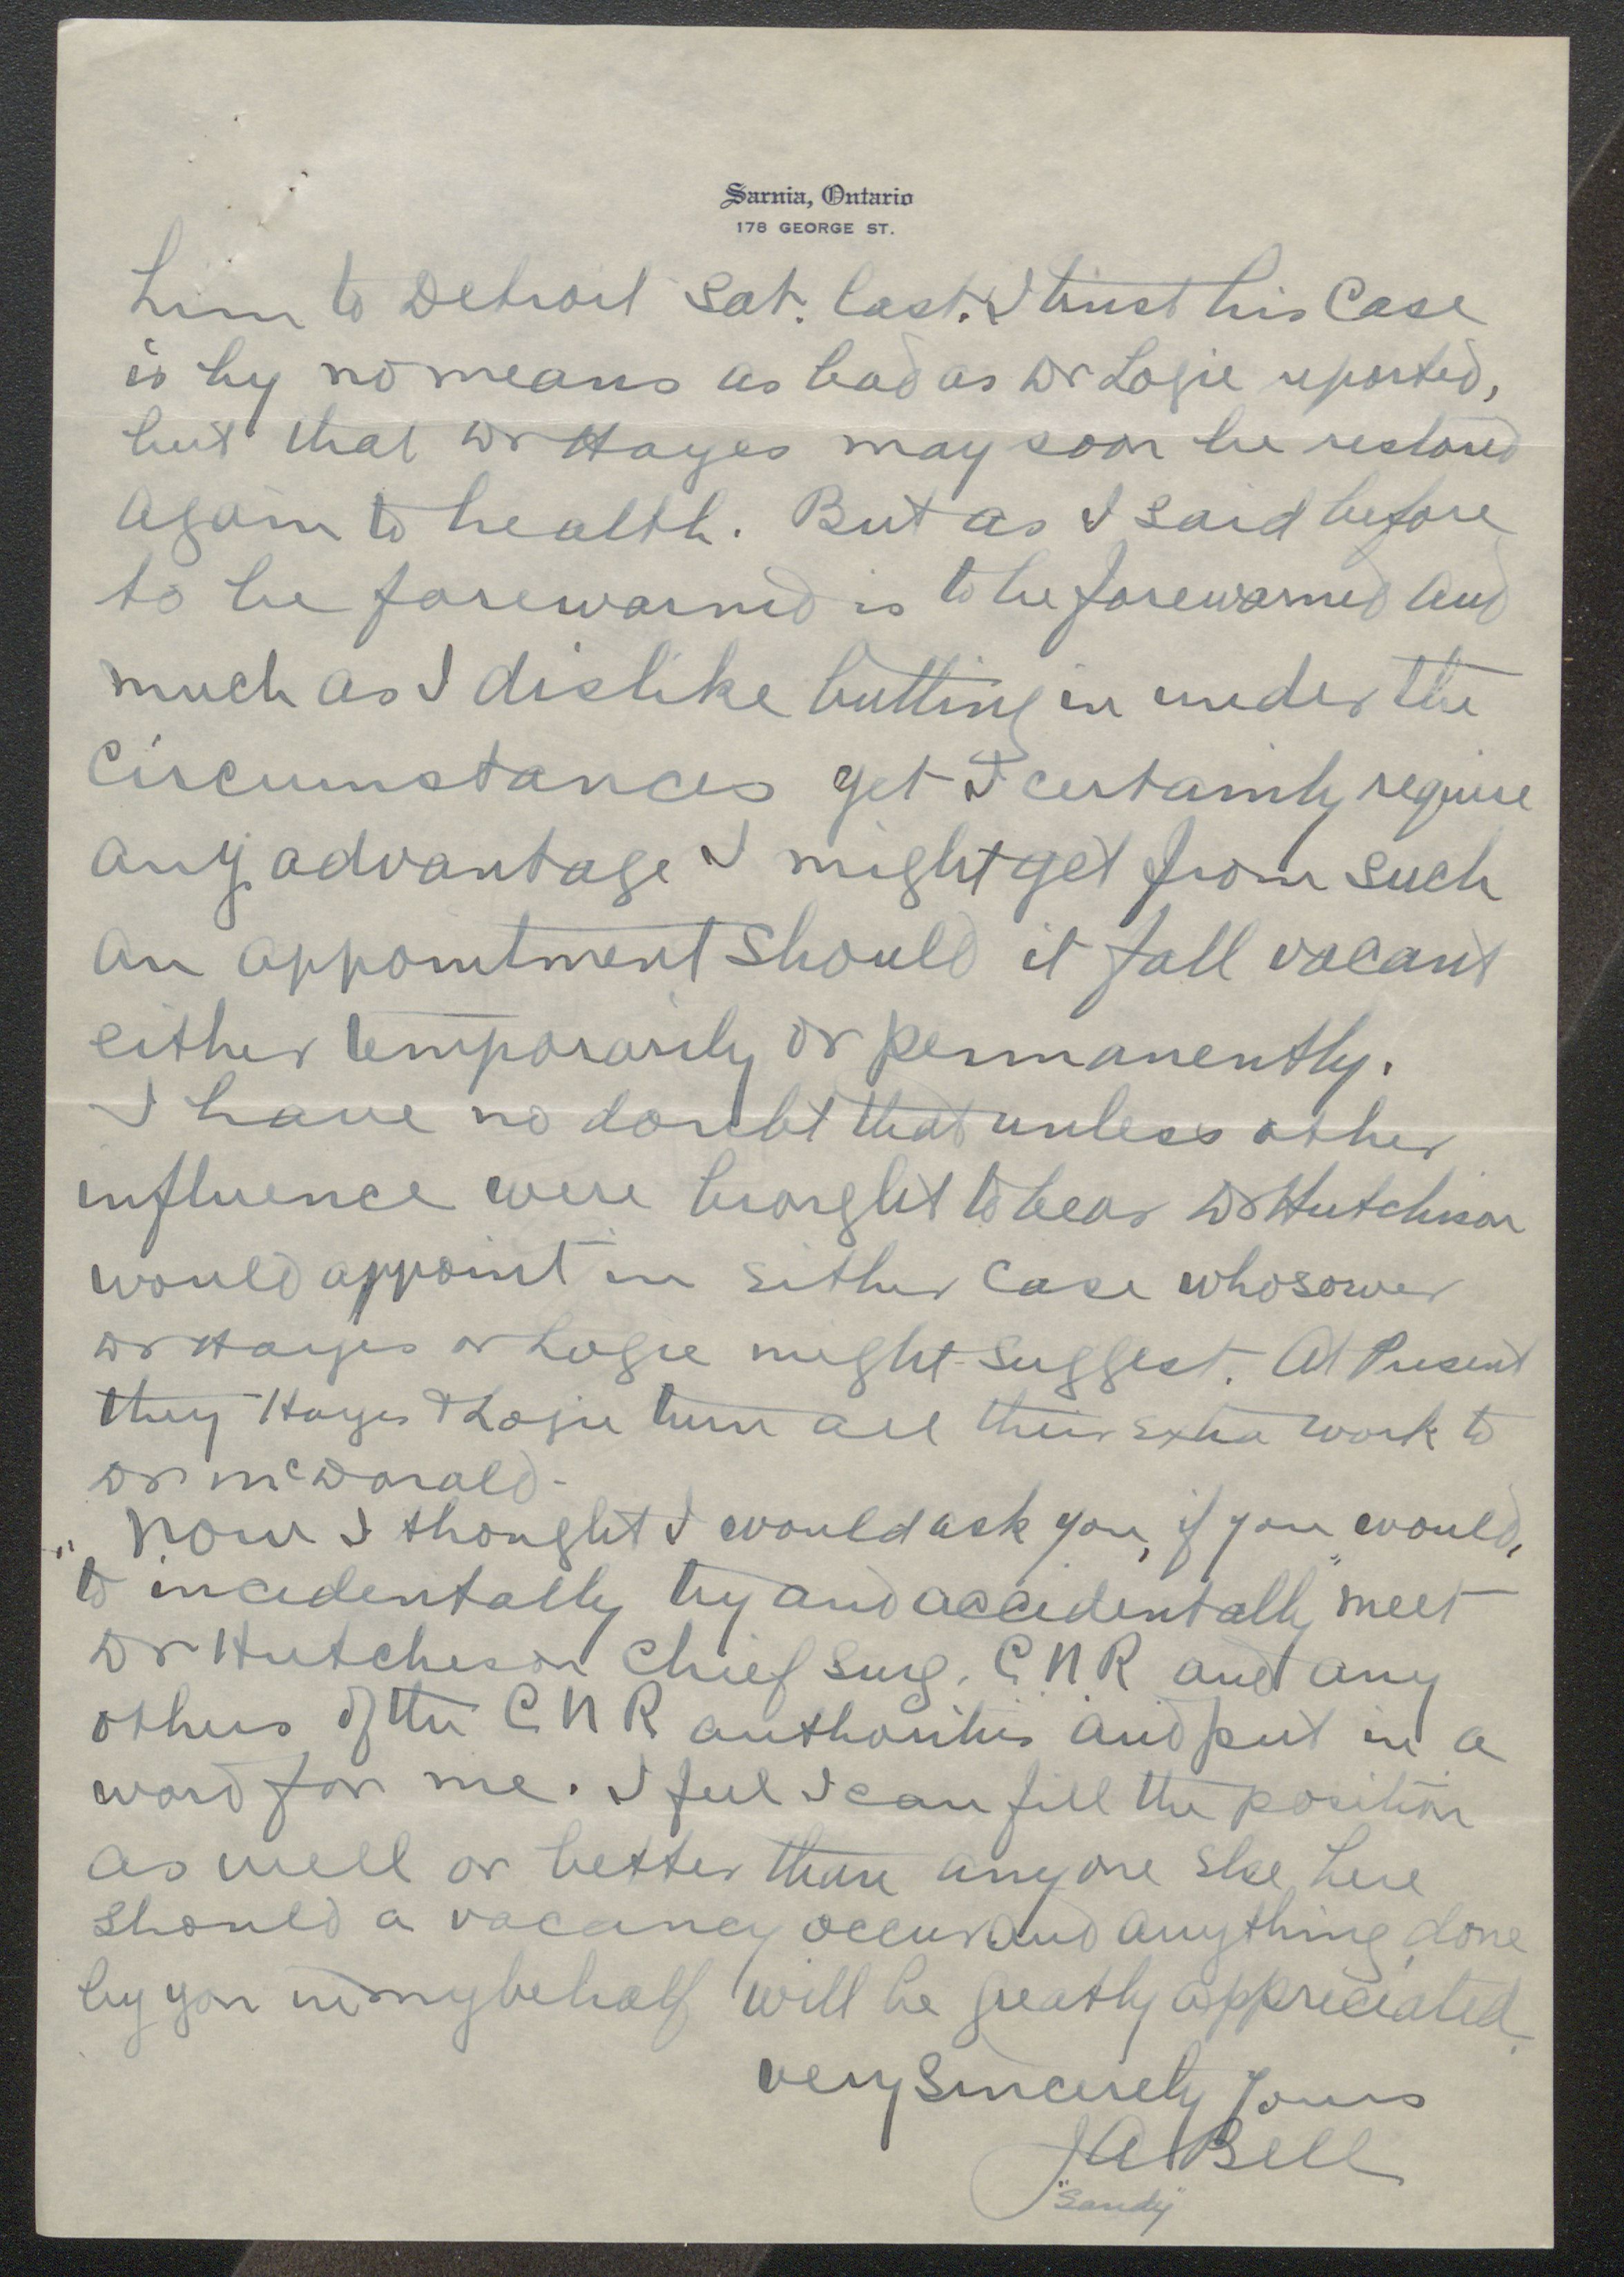 Sarnia, Ontario
178 GEORGE ST.
him to Detroit Sat. last. I trust his Case
is by no means as bad as Dr Logie reported,
but that Dr Hayes may soon be restored
again to health. But as I said before
to be forewarned is to be forewarned and
much as I dislike butting in under the
circumstances yet I certainly require
any advantage I might get from such
an appointment should it fall vacant
either temporarily or permanently.
I have no doubt that unless other
influence were brought to bear Dr Hutchison
would appoint in either case whosoever
Dr Hayes or Logie might suggest. At Present
they Hayes & Logie turn all their extra work to
Dr McDonald -
Now I thought I would ask you, if you would,
"to incidentally try and accidentally" meet
Dr Hutcheson Chief Surg. C.N.R and any
others of the C.N.R authorities and put in a
word for me. I feel I can fill the position
as well or better than anyone else here
should a vacancy occur and anything done
by you in my behalf will be greatly appreciated.
very Sincerely Yours
JA Bell
"Sandy"